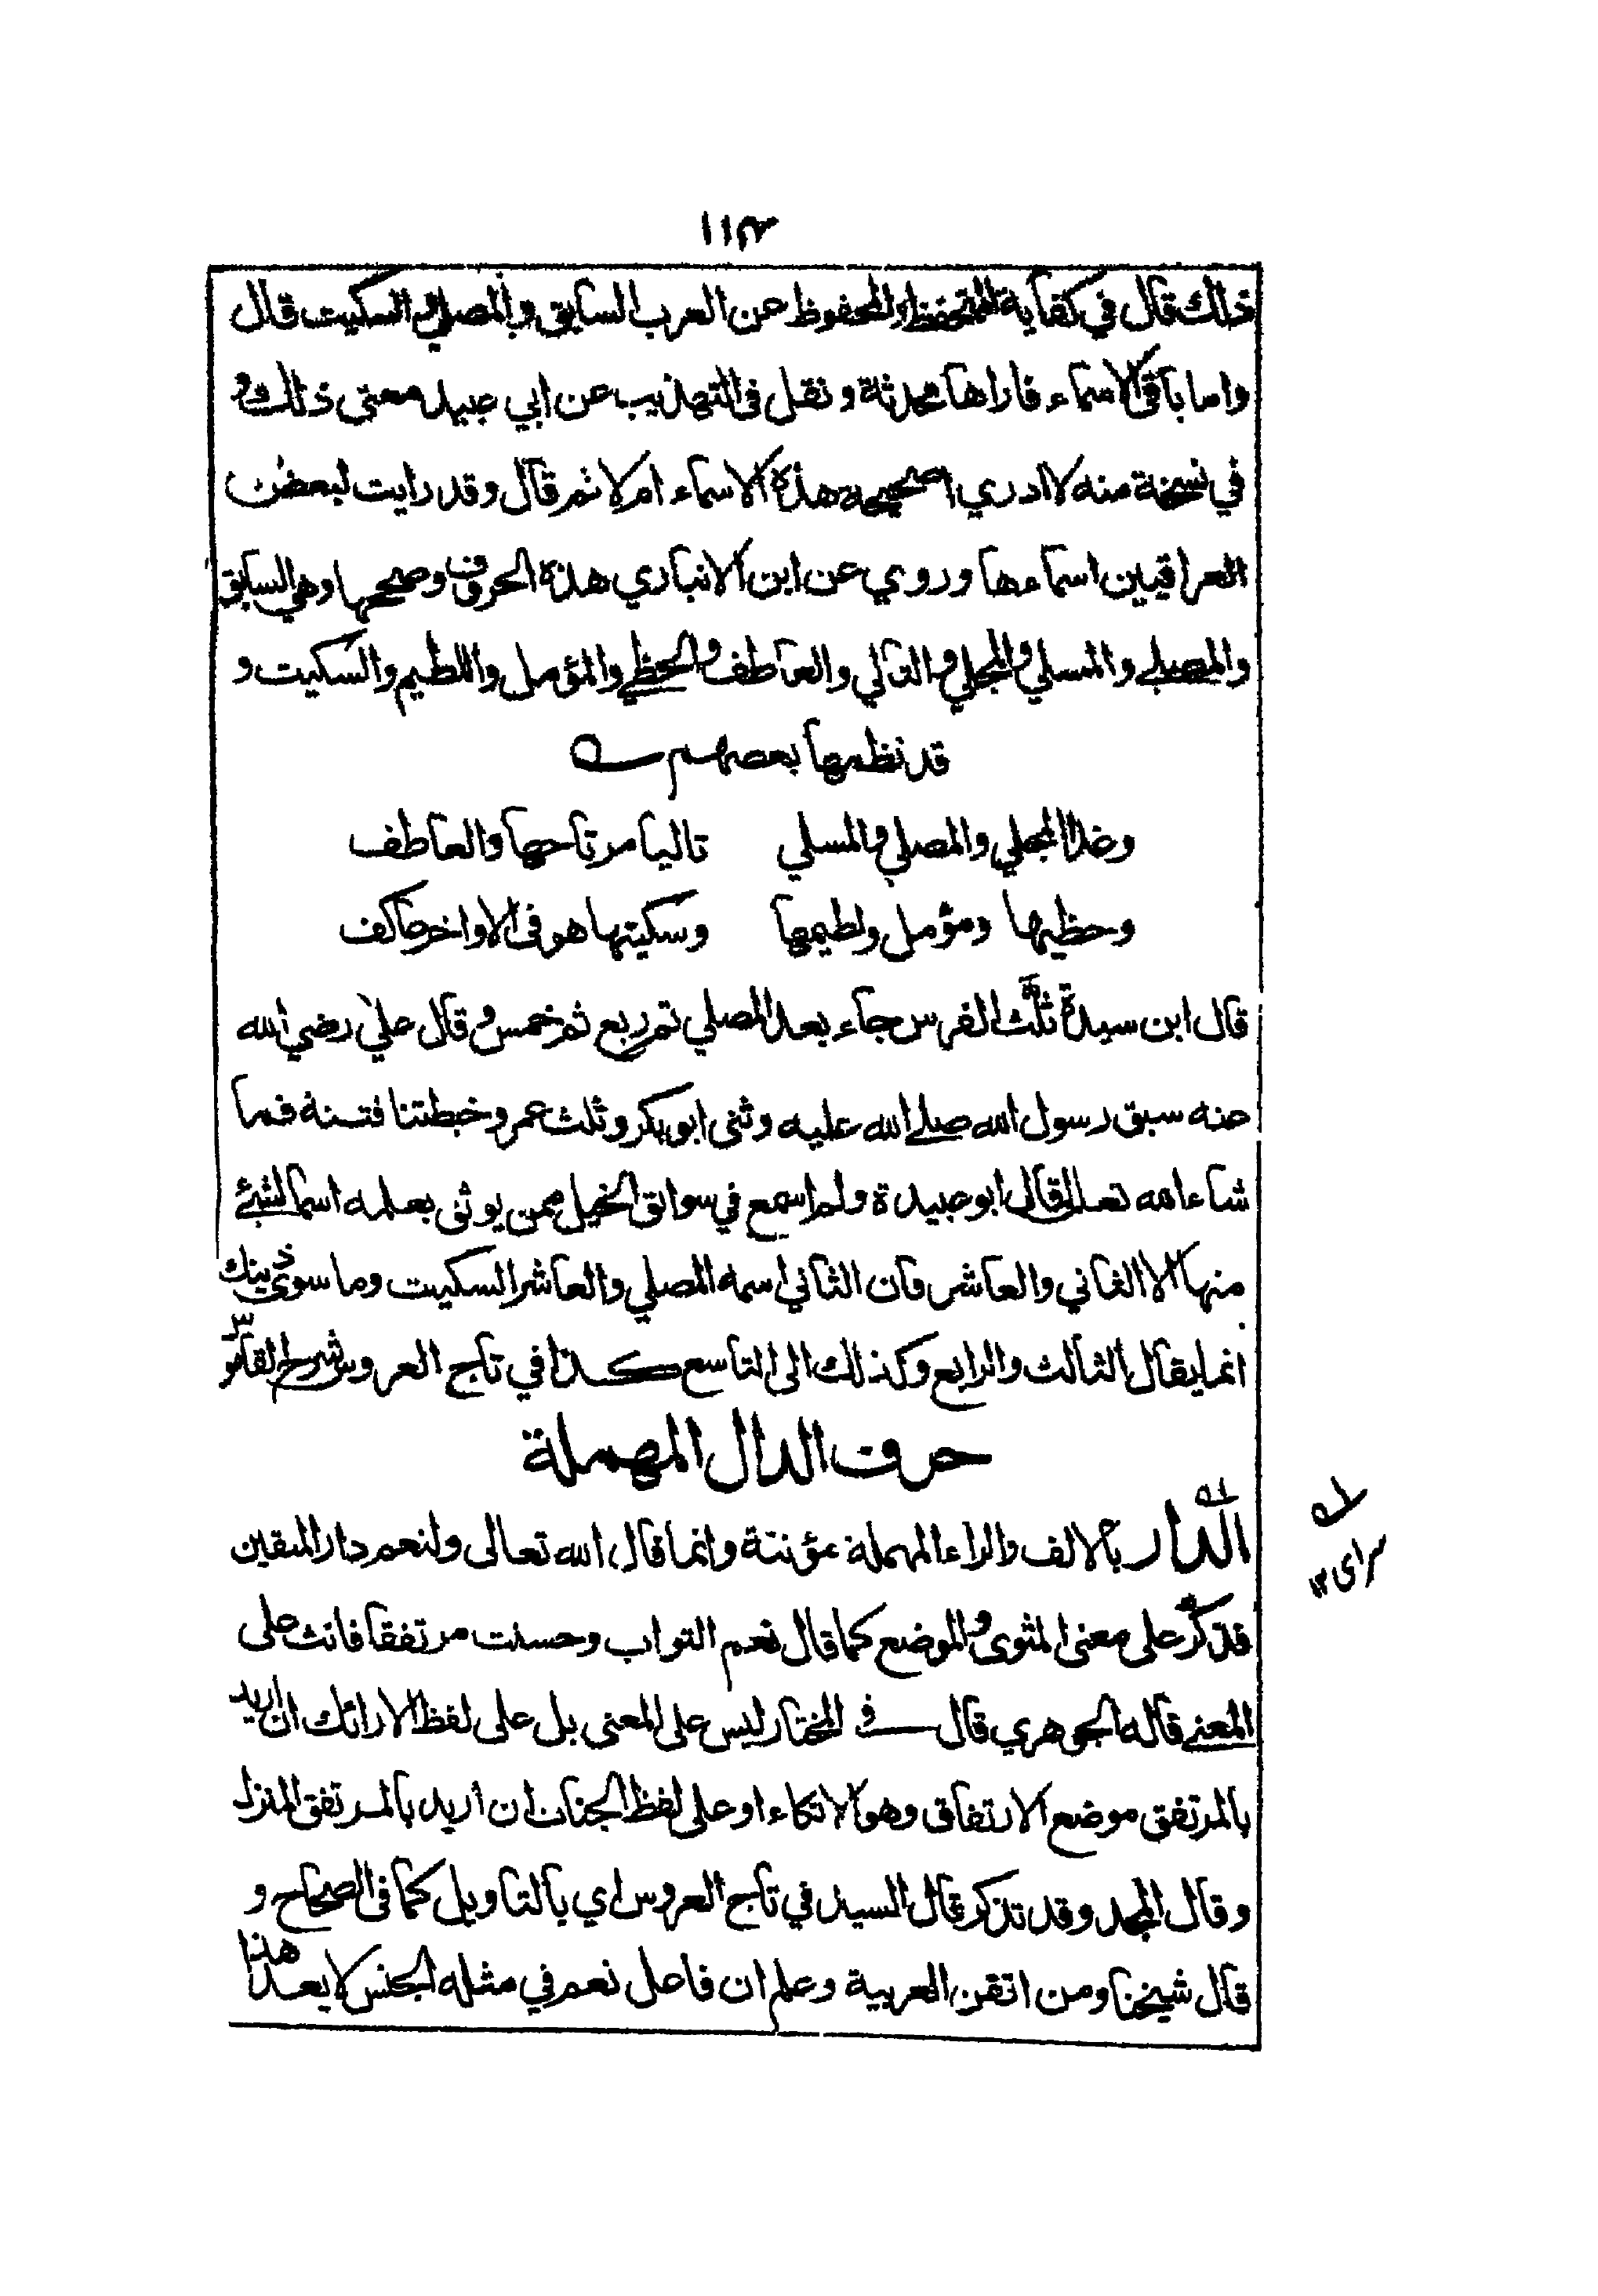 ١١٣
ذلك قال في كفاية المتحفظ والمحفوظ عن العرب السابق والمصلي والسكيت قال
واما باقي الاسماء فاراها محدثة و نقل فى التهذيب عن ابي عبيد معنى ذلك و
في نسخة منه لا ادري اصحيحة هذه الاسماء ام لا ثم قال وقد رايت لبعض
العراقيين اسماءها وروي عن ابن الانباري هذه الحروف وصححها وهي السابق
والمصلے والمسلي والمجلي والتالي والعاطف والحظے والمؤمل واللطيم والسكيت و
قد نظمها بعضهم ؎
وغدا المجلي والمصلي والمسلي تاليا مرتاحها والعاطف
وحظيها ومؤمل ولطيمها وسكيتها هو فى الاواخر عاكف
قال ابن سيدة ثلّث الفرس جاء بعد المصلي ثم ربع ثم خمس وقال علي رضي الله
عنه سبق رسول الله صلے الله عليه وثنى ابو بكر وثلث عمر وخبطتنا فتنة فما
شاء الله تعالى قال ابو عبيدة ولم اسمع في سوابق الخيل ممن يوثق بعلمه اسما لشئے
منها الا الثاني والعاشر فان الثاني اسمه المصلي والعاشر السكيت وما سوى ذينك
انما يقال الثالث والرابع وكذلك الى التاسع كذا في تاج العروس شرح القاموس
حرف الدال المهملة
الدار بالالف والراء المهملة مؤنثة وانما قال الله تعالى ولنعم دار المتقين
فذكر على معنى المثوى والموضع كما قال نعم الثواب وحسنت مرتفقا فانث على
المعنے قاله الجوهري قال فى المختار ليس على المعنى بل على لفظ الارائك ان اريد
بالمرتفق موضع الارتفاق وهو الاتكاء او على لفظ الجنات ان اريد بالمرتفق المنزل
وقال المجد وقد تذكر قال السيد في تاج العروس اي بالتاويل كما فى الصحاح و
قال شيخنا ومن اتقن العربية وعلم ان فاعل نعم في مثله الجنس لا يعد هذا
سراى ١٢